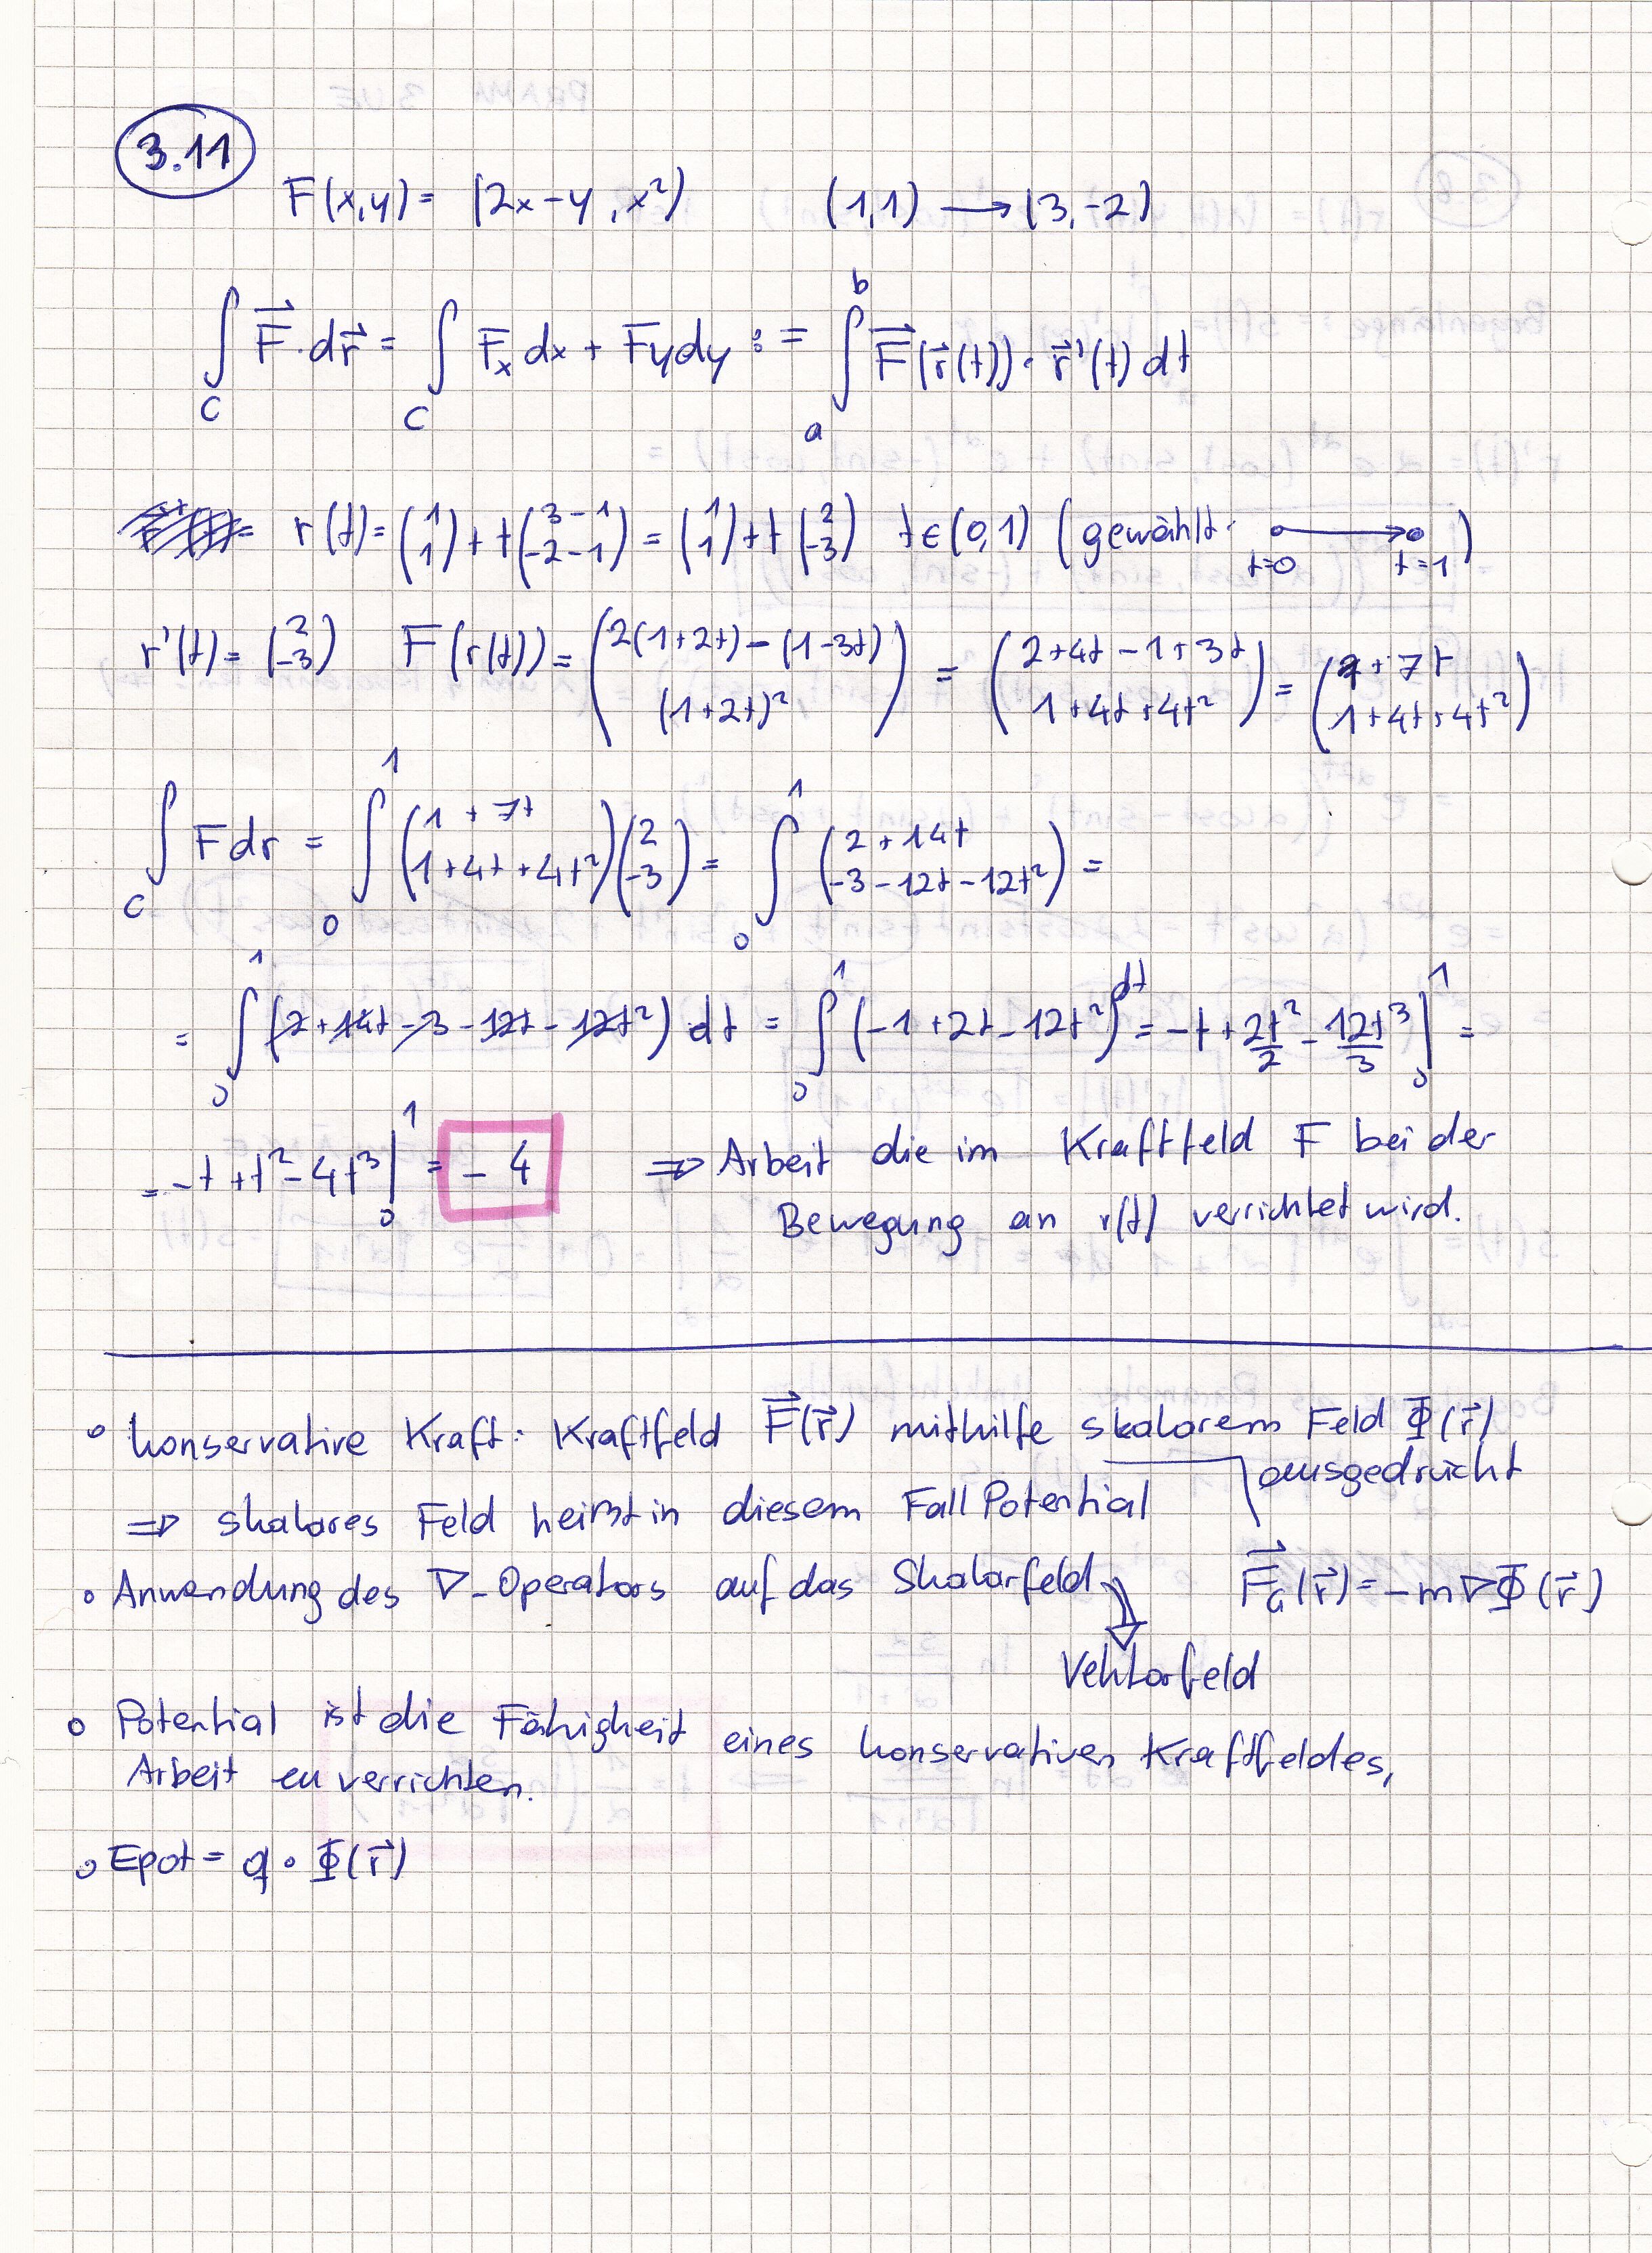 3.11
F(x,y) = (2x-y, x²) (1,1) → (3,-2)
∫_C F⃗·dr⃗ = ∫_C F_x dx + Fy dy := ∫_a^b F⃗(r⃗(t))·r⃗'(t) dt
r(t) = (1 1) + t (3-1 -2-1) = (1 1) + t (2 -3) t ∈ (0,1) (gewählt: t=0 → t=1)
r'(t) = (2 -3) F(r(t)) = (2(1+2t)-(1-3t) (1+2t)²) = (2+4t-1+3t 1+4t+4t²) = (1+7t 1+4t+4t²)
∫_C F dr = ∫_0^1 (1+7t 1+4t+4t²)(2 -3) = ∫_0^1 (2+14t -3-12t-12t²) =
= ∫_0^1 (2+14t-3-12t-12t²) dt = ∫_0^1 (-1+2t-12t²) dt = -t + 2t²/2 - 12t³/3 |_0^1 =
= -t+t²-4t³ |_0^1 = -4 ⇒ Arbeit die im Kraftfeld F bei der
Bewegung an r(t) verrichtet wird.
∘ konservative Kraft: Kraftfeld F⃗(r⃗) mithilfe skalarem Feld Φ(r⃗)
ausgedrückt
⇒ skalares Feld heißt in diesem Fall Potential
∘ Anwendung des ∇-Operators auf das Skalarfeld F⃗_G(r⃗) = -m∇Φ(r⃗)
Vektorfeld
∘ Potential ist die Fähigkeit eines konservativen Kraftfeldes,
Arbeit zu verrichten.
∘ Epot = q · Φ(r⃗)